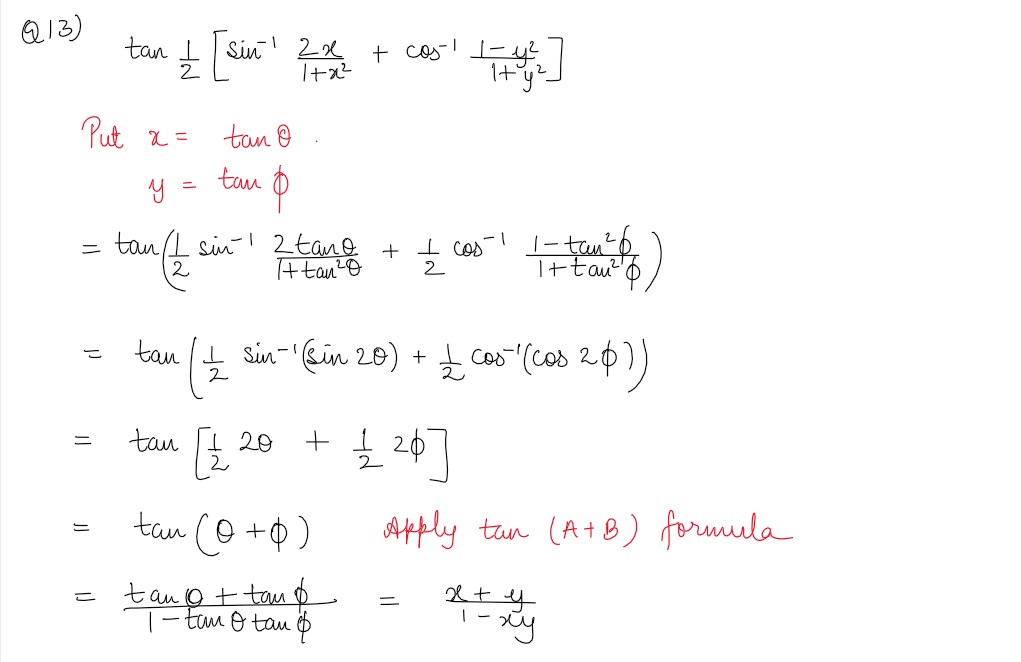 Q13) tan 1/2 [sin⁻¹ 2x/1+x² + cos⁻¹ 1-y²/1+y²]
Put x = tan θ .
y = tan ϕ
= tan(1/2 sin⁻¹ 2tanθ/1+tan²θ + 1/2 cos⁻¹ 1-tan²ϕ/1+tan²ϕ)
= tan(1/2 sin⁻¹(sin 2θ) + 1/2 cos⁻¹(cos 2ϕ))
= tan [1/2 2θ + 1/2 2ϕ]
= tan (θ+ϕ) Apply tan (A+B) formula
= tanθ + tanϕ/1-tanθ tanϕ = x+y/1-xy